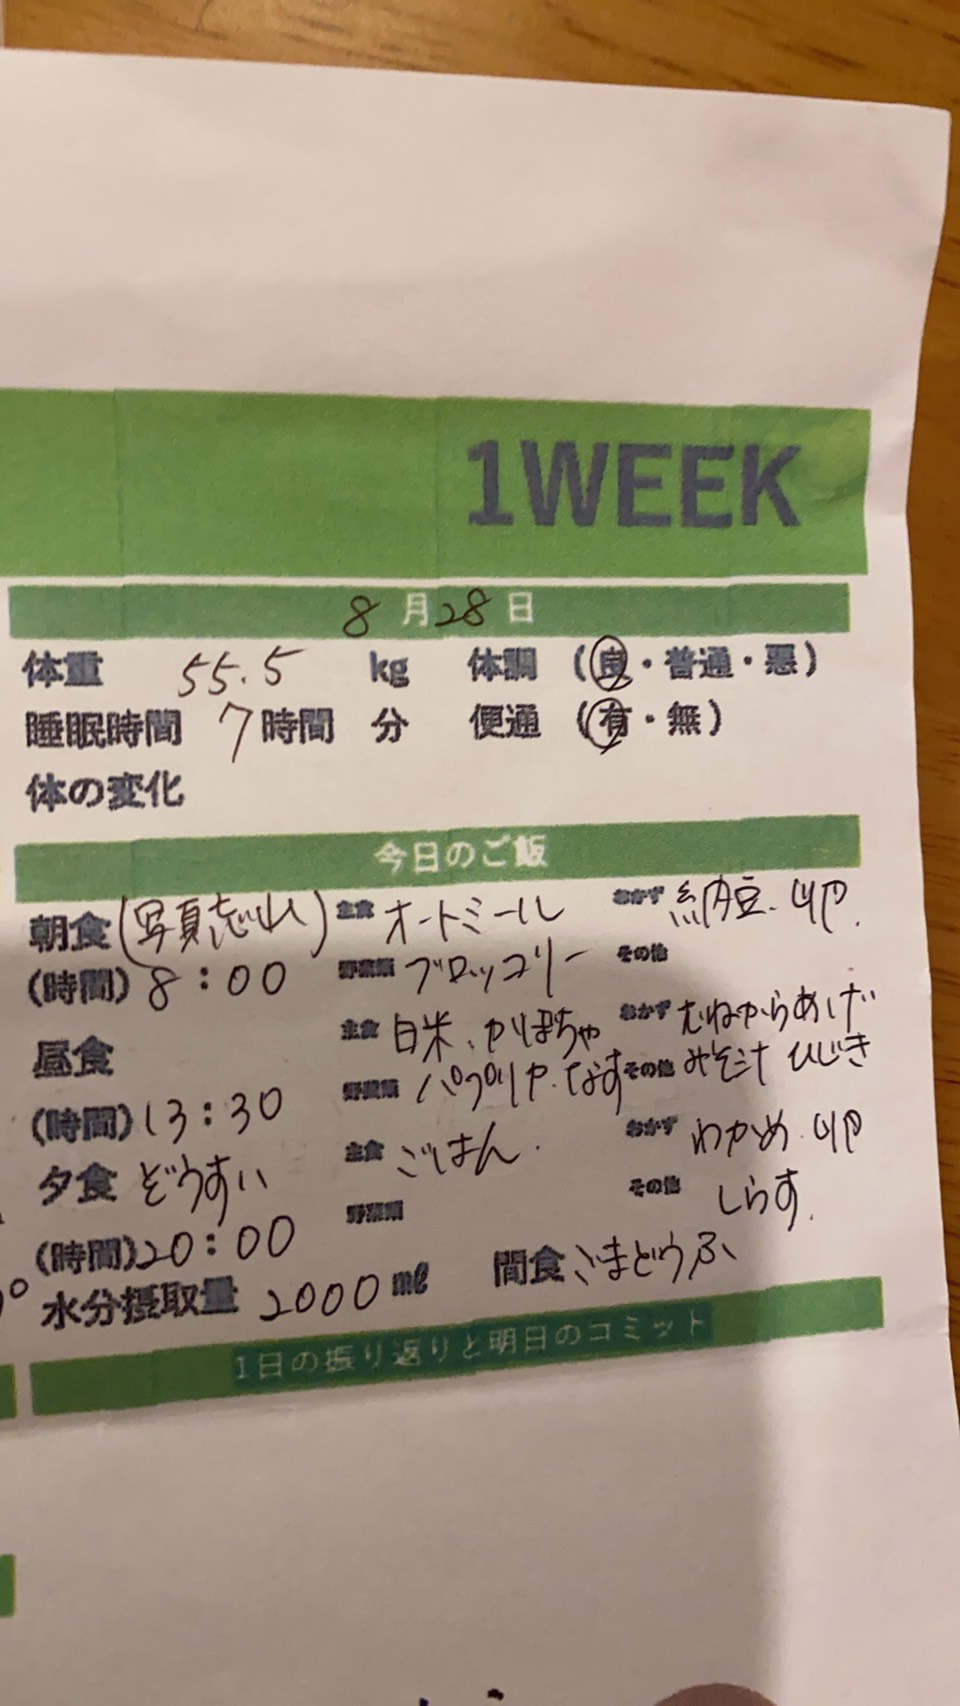 1WEEK
8月28日
体重 55.5 kg 体調 (良・普通・悪)
睡眠時間 7時間 分 便通 (有・無)
体の変化
今日のご飯
朝食(写真忘れ) 主食 オートミール おかず 納豆.卵.
(時間) 8:00 野菜類 ブロッコリー その他
昼食 主食 白米、かぼちゃ おかず むねからあげ
(時間) 13:30 野菜類 パプリカ.なす その他 みそ汁 ひじき
夕食 ぞうすい 主食 ごはん. おかず わかめ.卵
(時間)20:00 野菜類 その他 しらす.
水分摂取量 2000ml 間食 ごまどうふ
1日の振り返りと明日のコミット